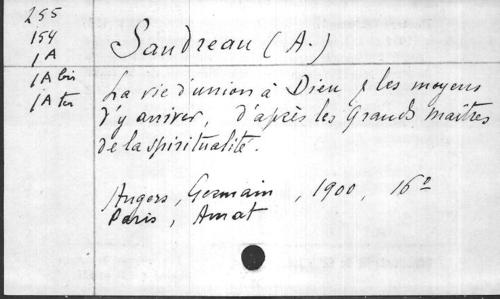 255
154
1A
1A bis
1A ter
Saudreau (A.)
La vie d'union à Dieu & les moyens
d'y arriver, d'après les Grands maîtres
de la spiritualité.
Angers, Germain, 1900, 16º
Paris, Amat